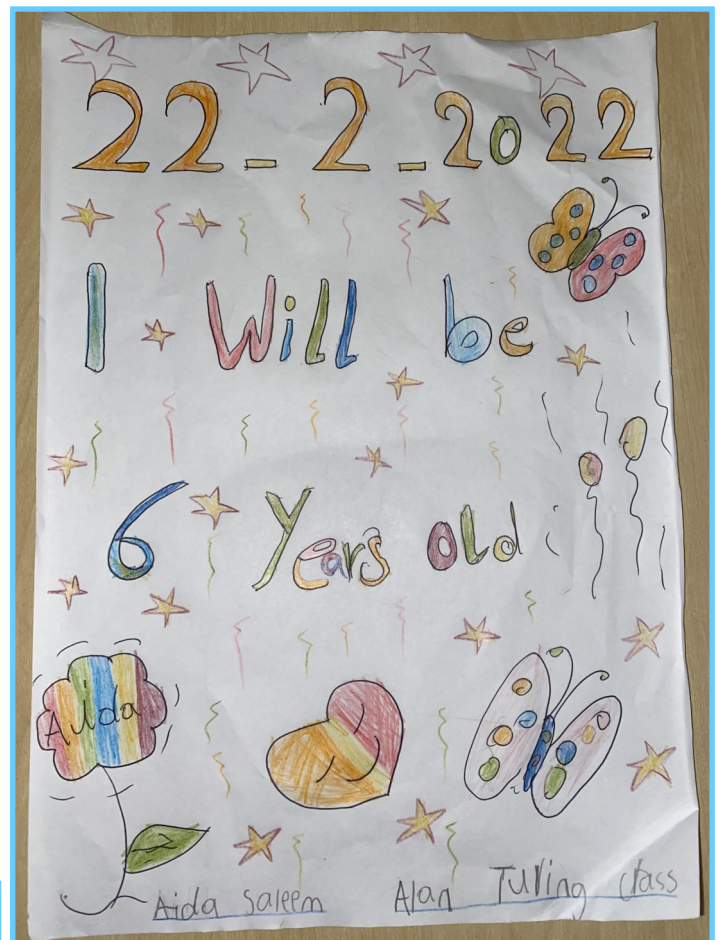 22_2_2022
I Will be
6 Years old
Aida
Aida Saleem Alan Turing class